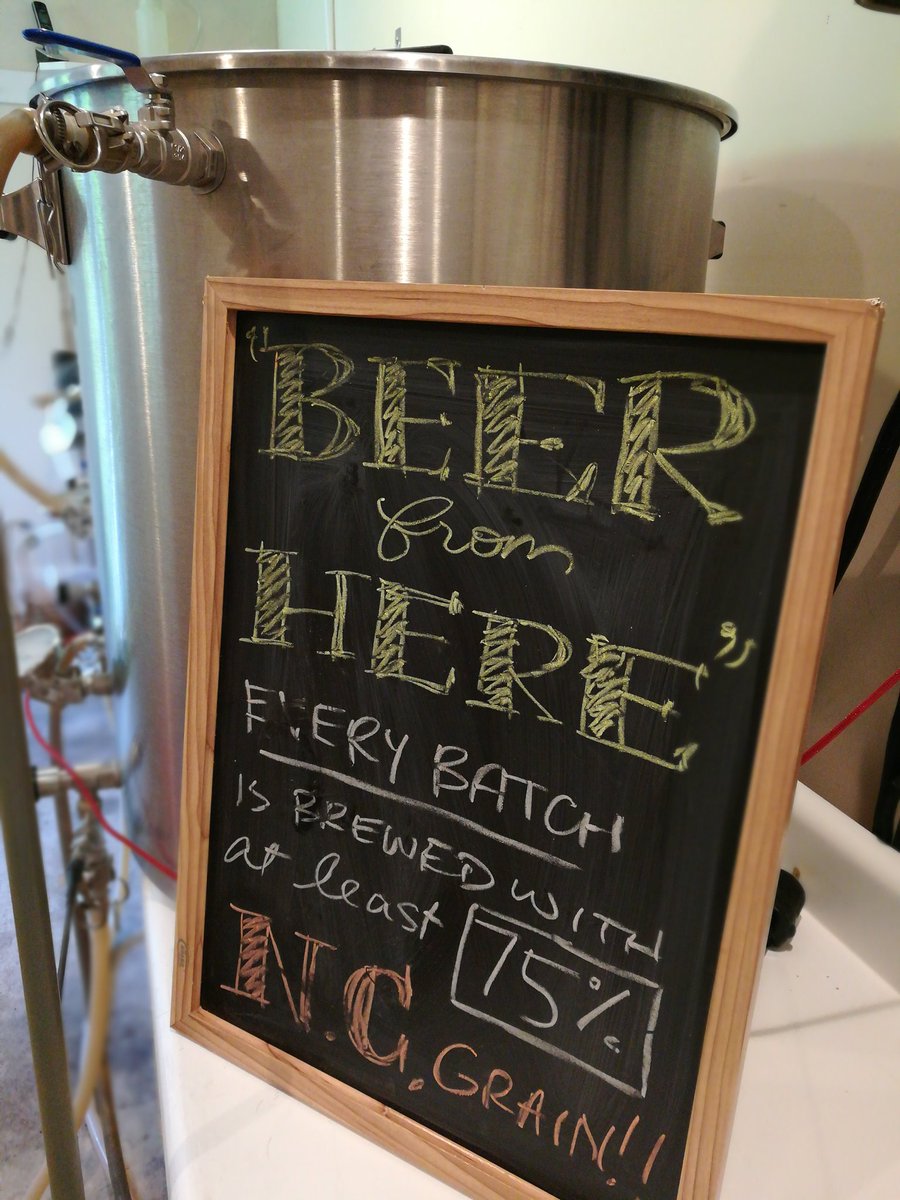 "BEER
from
HERE"
EVERY BATCH
IS BREWED WITH
at least 75%
N.C. GRAIN!!